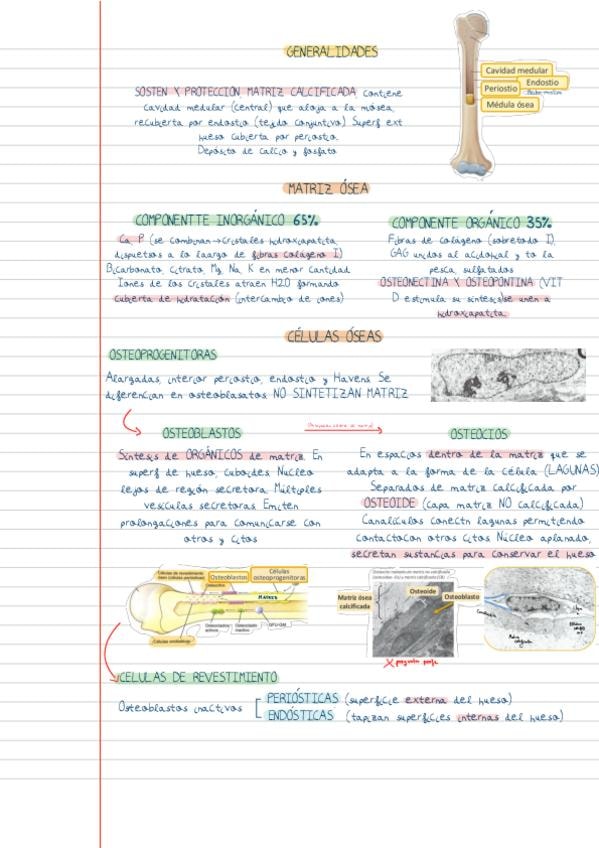 GENERALIDADES
SOSTEN Y PROTECCIÓN MATRIZ CALCIFICADA, contiene
cavidad medular (central) que aloja a la mósea,
recubierta por endostio (tejido conjuntivo) Superf ext
hueso cubierta por periostio.
Depósito de calcio y fosfato
Cavidad medular
Endostio
Periostio
Médula ósea
MATRIZ ÓSEA
COMPONENTTE INORGÁNICO 65%
Ca, P (se combinan→cristales hidroxiapatita,
dispuetsos a lo laargo de fibras colágeno I)
Bicarbonato, citrato, Mg, Na, K en menor cantidad
Iones de los cristales atraen H2O formando
cubierta de hidratación (intercambio de iones)
COMPONENTE ORGÁNICO 35%
Fibras de colágeno (sobretodo I),
GAG unidos al acidohial y to la
pesca, sulfatados
OSTEONECTINA Y OSTEOPONTINA (VIT
D estimula su síntesis)se unen a
hidroxiapatita.
CÉLULAS ÓSEAS
OSTEOPROGENITORAS
Alargadas, interior periostio, endostio y Havens Se
diferencian en osteoblasatos NO SINTETIZAN MATRIZ
OSTEOBLASTOS
Síntesis de ORGÁNICOS de matriz. En
superf de hueso, cuboides. Núcleo
lejos de región secretora. Múltiples
vesículas secretoras. Emiten
prolongaciones para comunicarse con
otros y citos
OSTEOCIOS
En espacios dentro de la matriz que se
adapta a la forma de la célula (LAGUNAS)
Separados de matriz calcificada por
OSTEOIDE (capa matriz NO calcificada)
Canalículos conectn lagunas permitiendo
contactocon otros citos Núcleo aplanado,
secretan sustancias para conservar el hueso
Células de revestimiento
óseo (células periósticas)
Osteoblastos
Células
osteoprogenitoras
Osteocitos
MATRIZ
Osteoblastos
activos
Osteoclasto
CFU-GM
Matriz ósea
calcificada
Osteoide
Osteoblasto
X pregunta profe
CELULAS DE REVESTIMIENTO
Osteoblastos inactivos
PERIÓSTICAS (superficie externa del hueso)
ENDÓSTICAS (tapizan superficies internas del hueso)